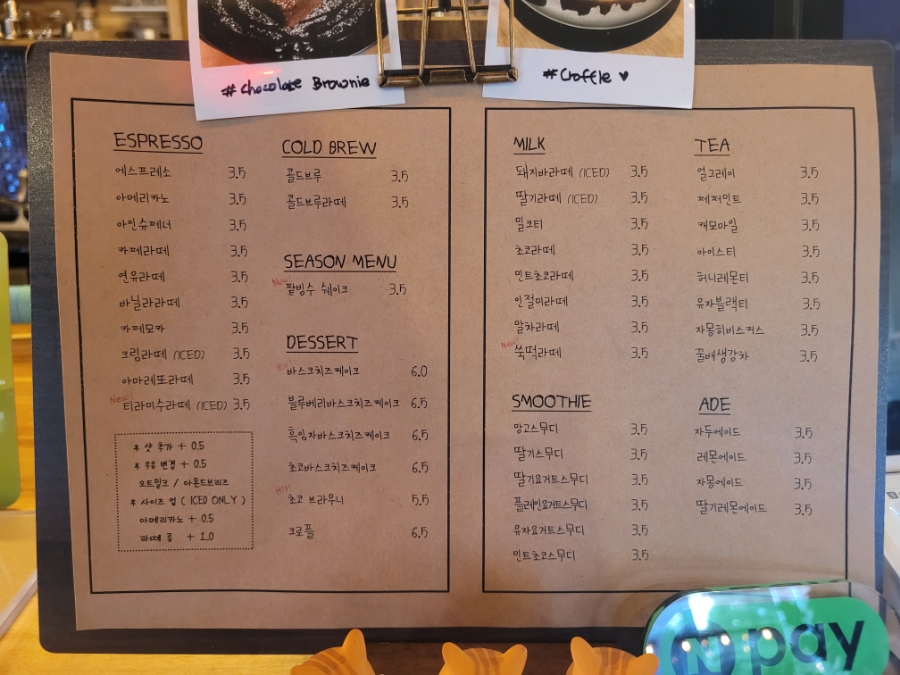 #Chocolate Brownie
#Croffle ♥
ESPRESSO
에스프레소 3.5
아메리카노 3.5
아인슈페너 3.5
카페라떼 3.5
연유라떼 3.5
바닐라라떼 3.5
카페모카 3.5
크림라떼 (ICED) 3.5
아마레또라떼 3.5
New!
티라미수라떼 (ICED) 3.5
* 샷 추가 + 0.5
* 우유 변경 + 0.5
오트밀크 / 아몬드브리즈
* 사이즈 업 ( ICED ONLY )
아메리카노 + 0.5
라떼 류 + 1.0
COLD BREW
콜드브루 3.5
콜드브루라떼 3.5
SEASON MENU
New!
팥빙수 쉐이크 3.5
DESSERT
바스크치즈케이크 6.0
블루베리바스크치즈케이크 6.5
흑임자바스크치즈케이크 6.5
초코바스크치즈케이크 6.5
초코 브라우니 5.5
크로플 6.5
MILK
돼지바라떼 (ICED) 3.5
딸기라떼 (ICED) 3.5
밀크티 3.5
초코라떼 3.5
민트초코라떼 3.5
인절미라떼 3.5
말차라떼 3.5
New!
쑥떡라떼 3.5
SMOOTHIE
망고스무디 3.5
딸기스무디 3.5
딸기요거트스무디 3.5
플레인요거트스무디 3.5
유자요거트스무디 3.5
민트초코스무디 3.5
TEA
얼그레이 3.5
페퍼민트 3.5
캐모마일 3.5
아이스티 3.5
허니레몬티 3.5
유자블랙티 3.5
자몽히비스커스 3.5
꿀배생강차 3.5
ADE
자두에이드 3.5
레몬에이드 3.5
자몽에이드 3.5
딸기레몬에이드 3.5
N pay